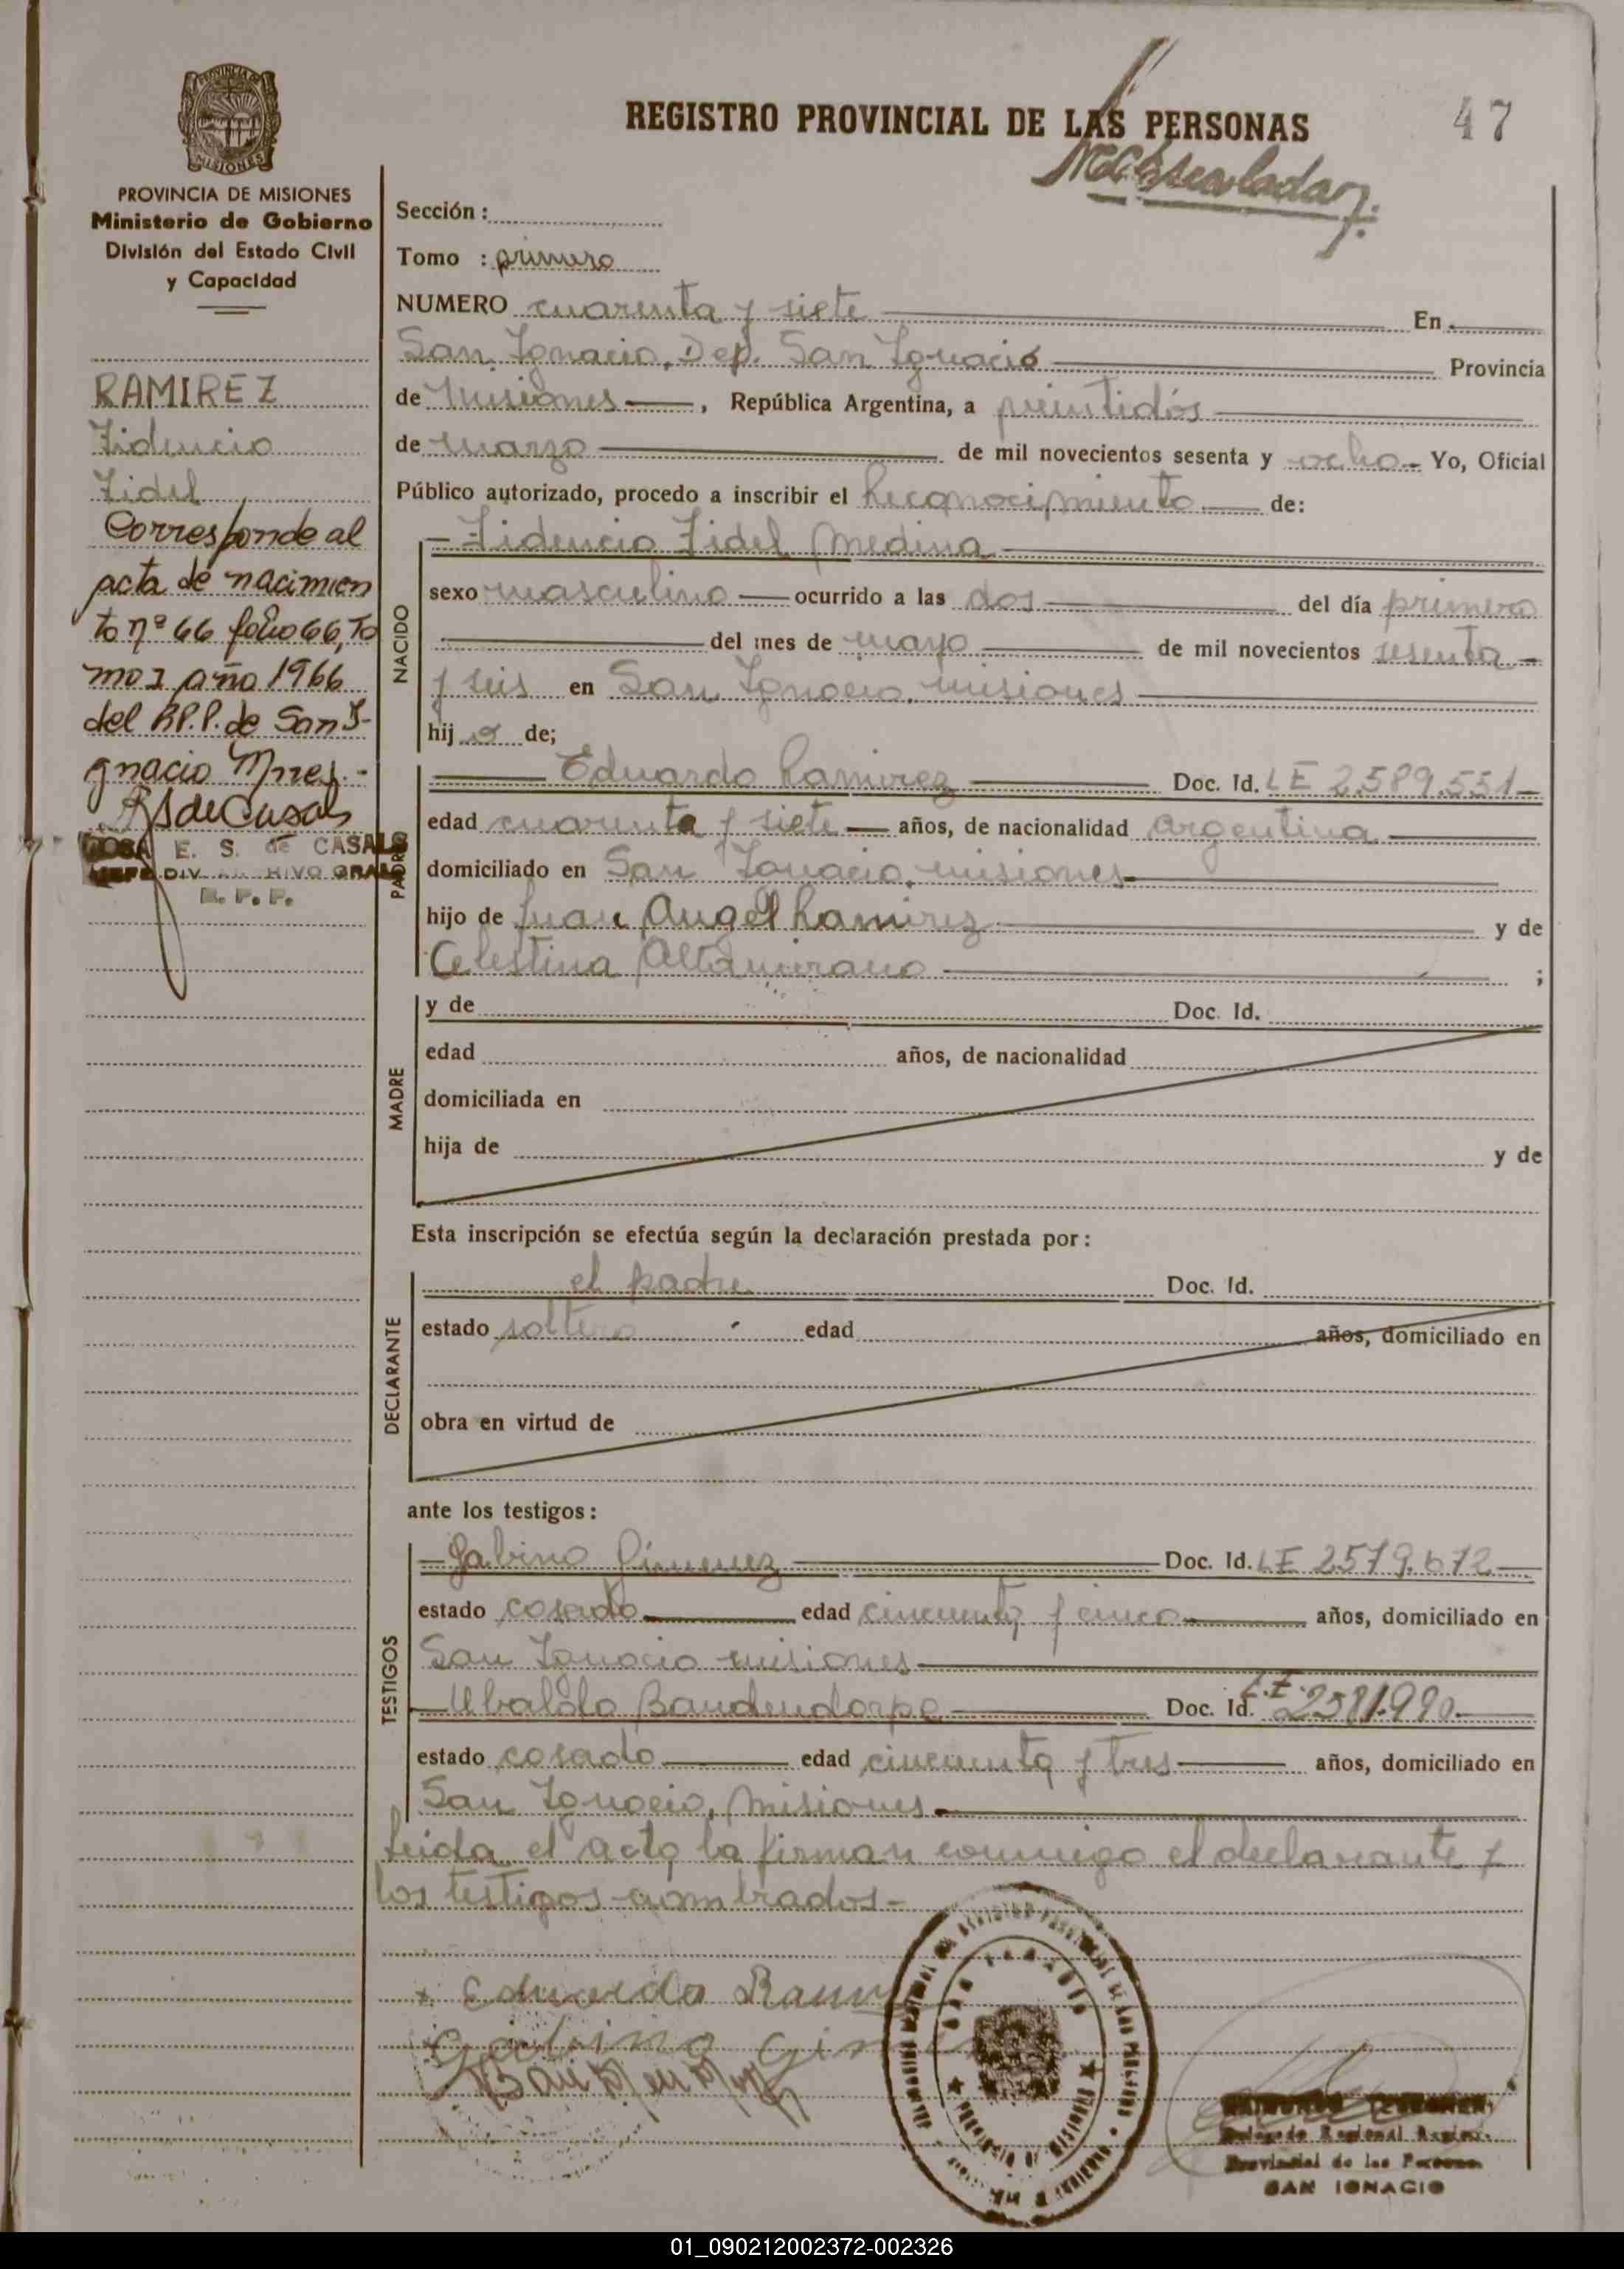 47
REGISTRO PROVINCIAL DE LAS PERSONAS
PROVINCIA DE
MISIONES
PROVINCIA DE MISIONES
Ministerio de Gobierno
División del Estado Civil
y Capacidad
RAMIREZ
Fidencio
Fidel
Corresponde al
acta de nacimien
to nº 66 folio 66, To
mo I año 1966
del R.P.P. de San I-
gnacio Mnes.-
E. S. de CASALS
R. P. P.
Sección :
Tomo : primero
NUMERO cuarenta y siete En
San Ignacio, Dep. San Ignacio Provincia
de Misiones, República Argentina, a veintidós
de marzo de mil novecientos sesenta y ocho.- Yo, Oficial
Público autorizado, procedo a inscribir el Reconocimiento de:
NACIDO
- Fidencio Fidel Medina
sexo masculino ocurrido a las dos del día primero
del mes de mayo de mil novecientos sesenta
y seis en San Ignacio, misiones
hijo de;
PADRE
Eduardo Ramirez Doc. Id. LE 2.589.551
edad cuarenta y siete años, de nacionalidad argentina
domiciliado en San Ignacio, misiones
hijo de Juan Angel Ramirez y de
Celestina Altamirano ;
MADRE
y de Doc. Id.
edad años, de nacionalidad
domiciliada en
hija de y de
Esta inscripción se efectúa según la declaración prestada por:
DECLARANTE
el padre Doc. Id.
estado soltero edad años, domiciliado en
obra en virtud de
ante los testigos:
TESTIGOS
- Gabino Gimenez Doc. Id. LE 2579.672
estado casado edad cincuenta y cinco años, domiciliado en
San Ignacio misiones
Ubaldo Baudendorpe Doc. Id. L.E. 2581.990
estado casado edad cincuenta y tres años, domiciliado en
San Ignacio, misiones
Leida el acta la firman conmigo el declarante y
los testigos nombrados-
Eduardo
Gabino
Delegado Regional
Provincial de las
SAN IGNACIO
01_090212002372-002326